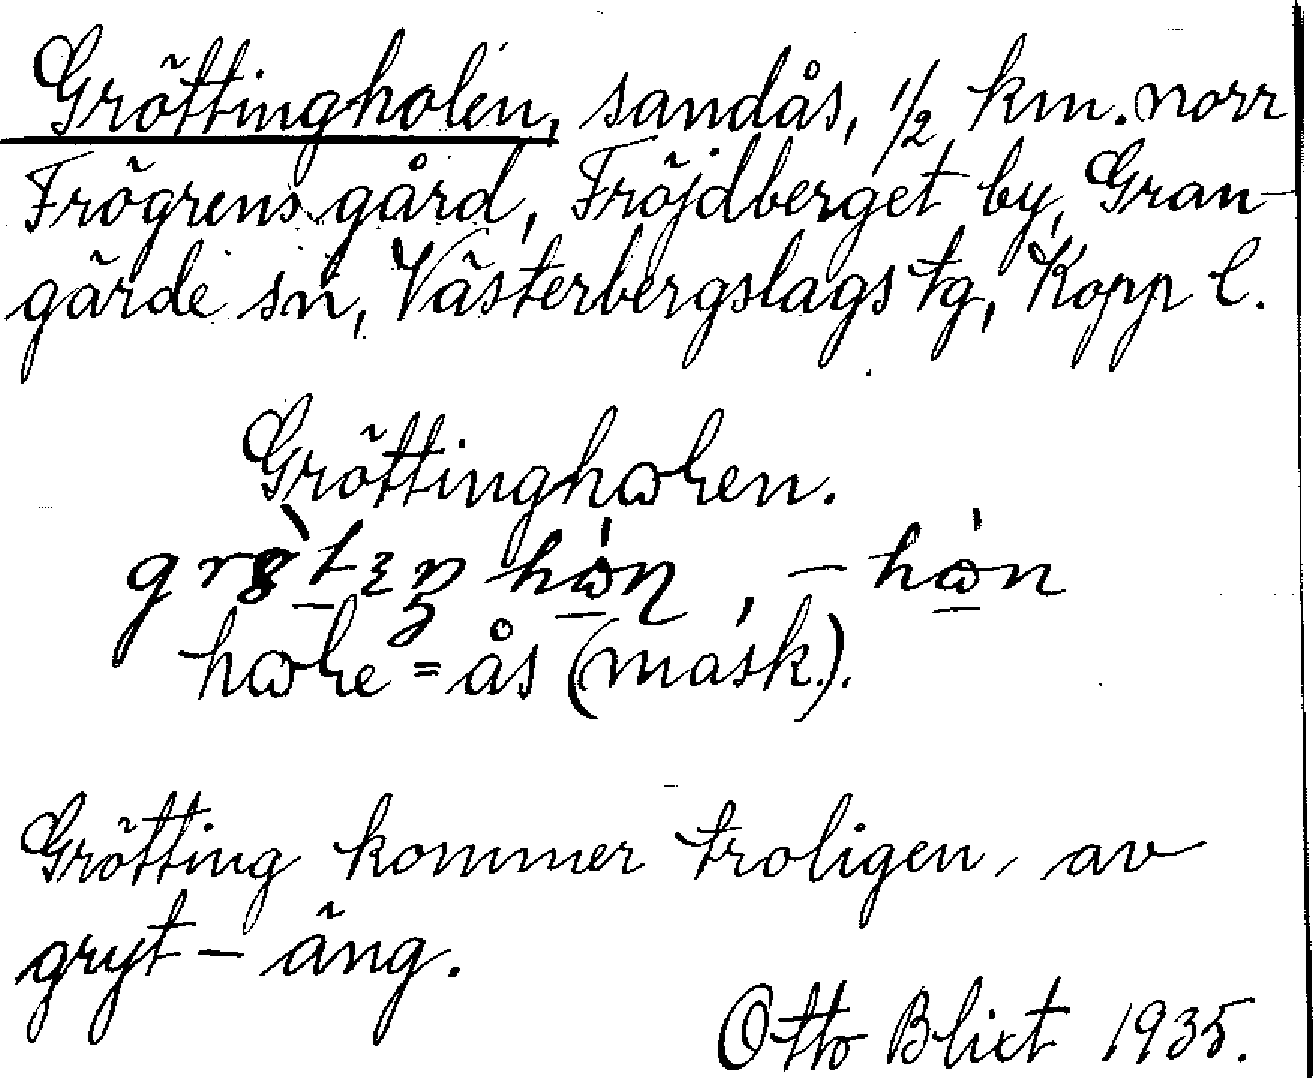 Gröttingholen, sandås, 1/2 km. norr
Frögrens gård, Fröjdberget by, Gran-
gärde sn, Västerbergslags tg, Kopp l.
Gröttinghωɭen.
hωɭe = ås (mask.).
Grötting kommer troligen av
gryt - äng.
Otto Blixt 1935.